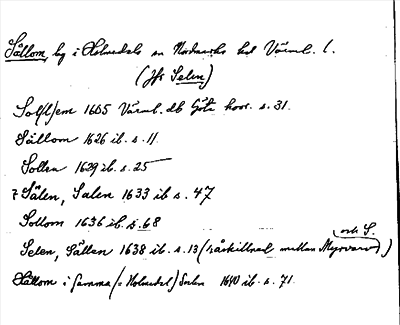 Sållom, by i Holmedals sn Nordmarks hd Värml. l.
(Jfr Salen)
Sol(l)em 1605 Värml. db Göta hovr. s. 31.
Sållom 1626 ib. s. 11.
Sollen 1629 ib. s. 25
Sålen, Salen 1633 ib s. 47
Sollom 1636 ib. s. 68
och S.
Selen, Sållen 1638 ib. s. 13 (åskillnad mellan Myrvarv)
Sållom i samma (= Holmedal) Socken 1640 ib. s. 71.